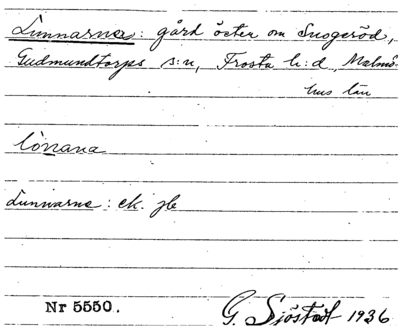 Linnarna: gård öster om Snogeröd,
Gudmundtorps s:n, Frosta h:d, Malmö-
hus län
lònnana
Lunnarne: ek. jb
Nr 5550.
G. Sjöstedt 1936